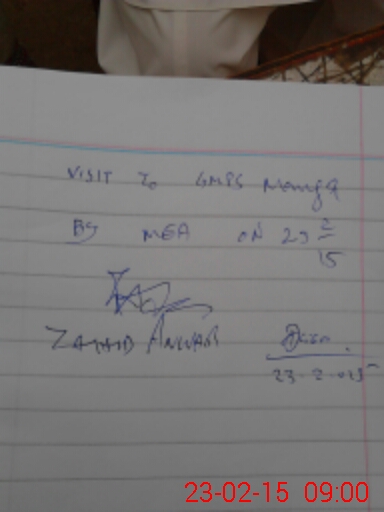 VISIT To GMPS Monga
By MEA ON 23 2/15
ZAHID ANWAR
23-2-015
23-02-15 09:00